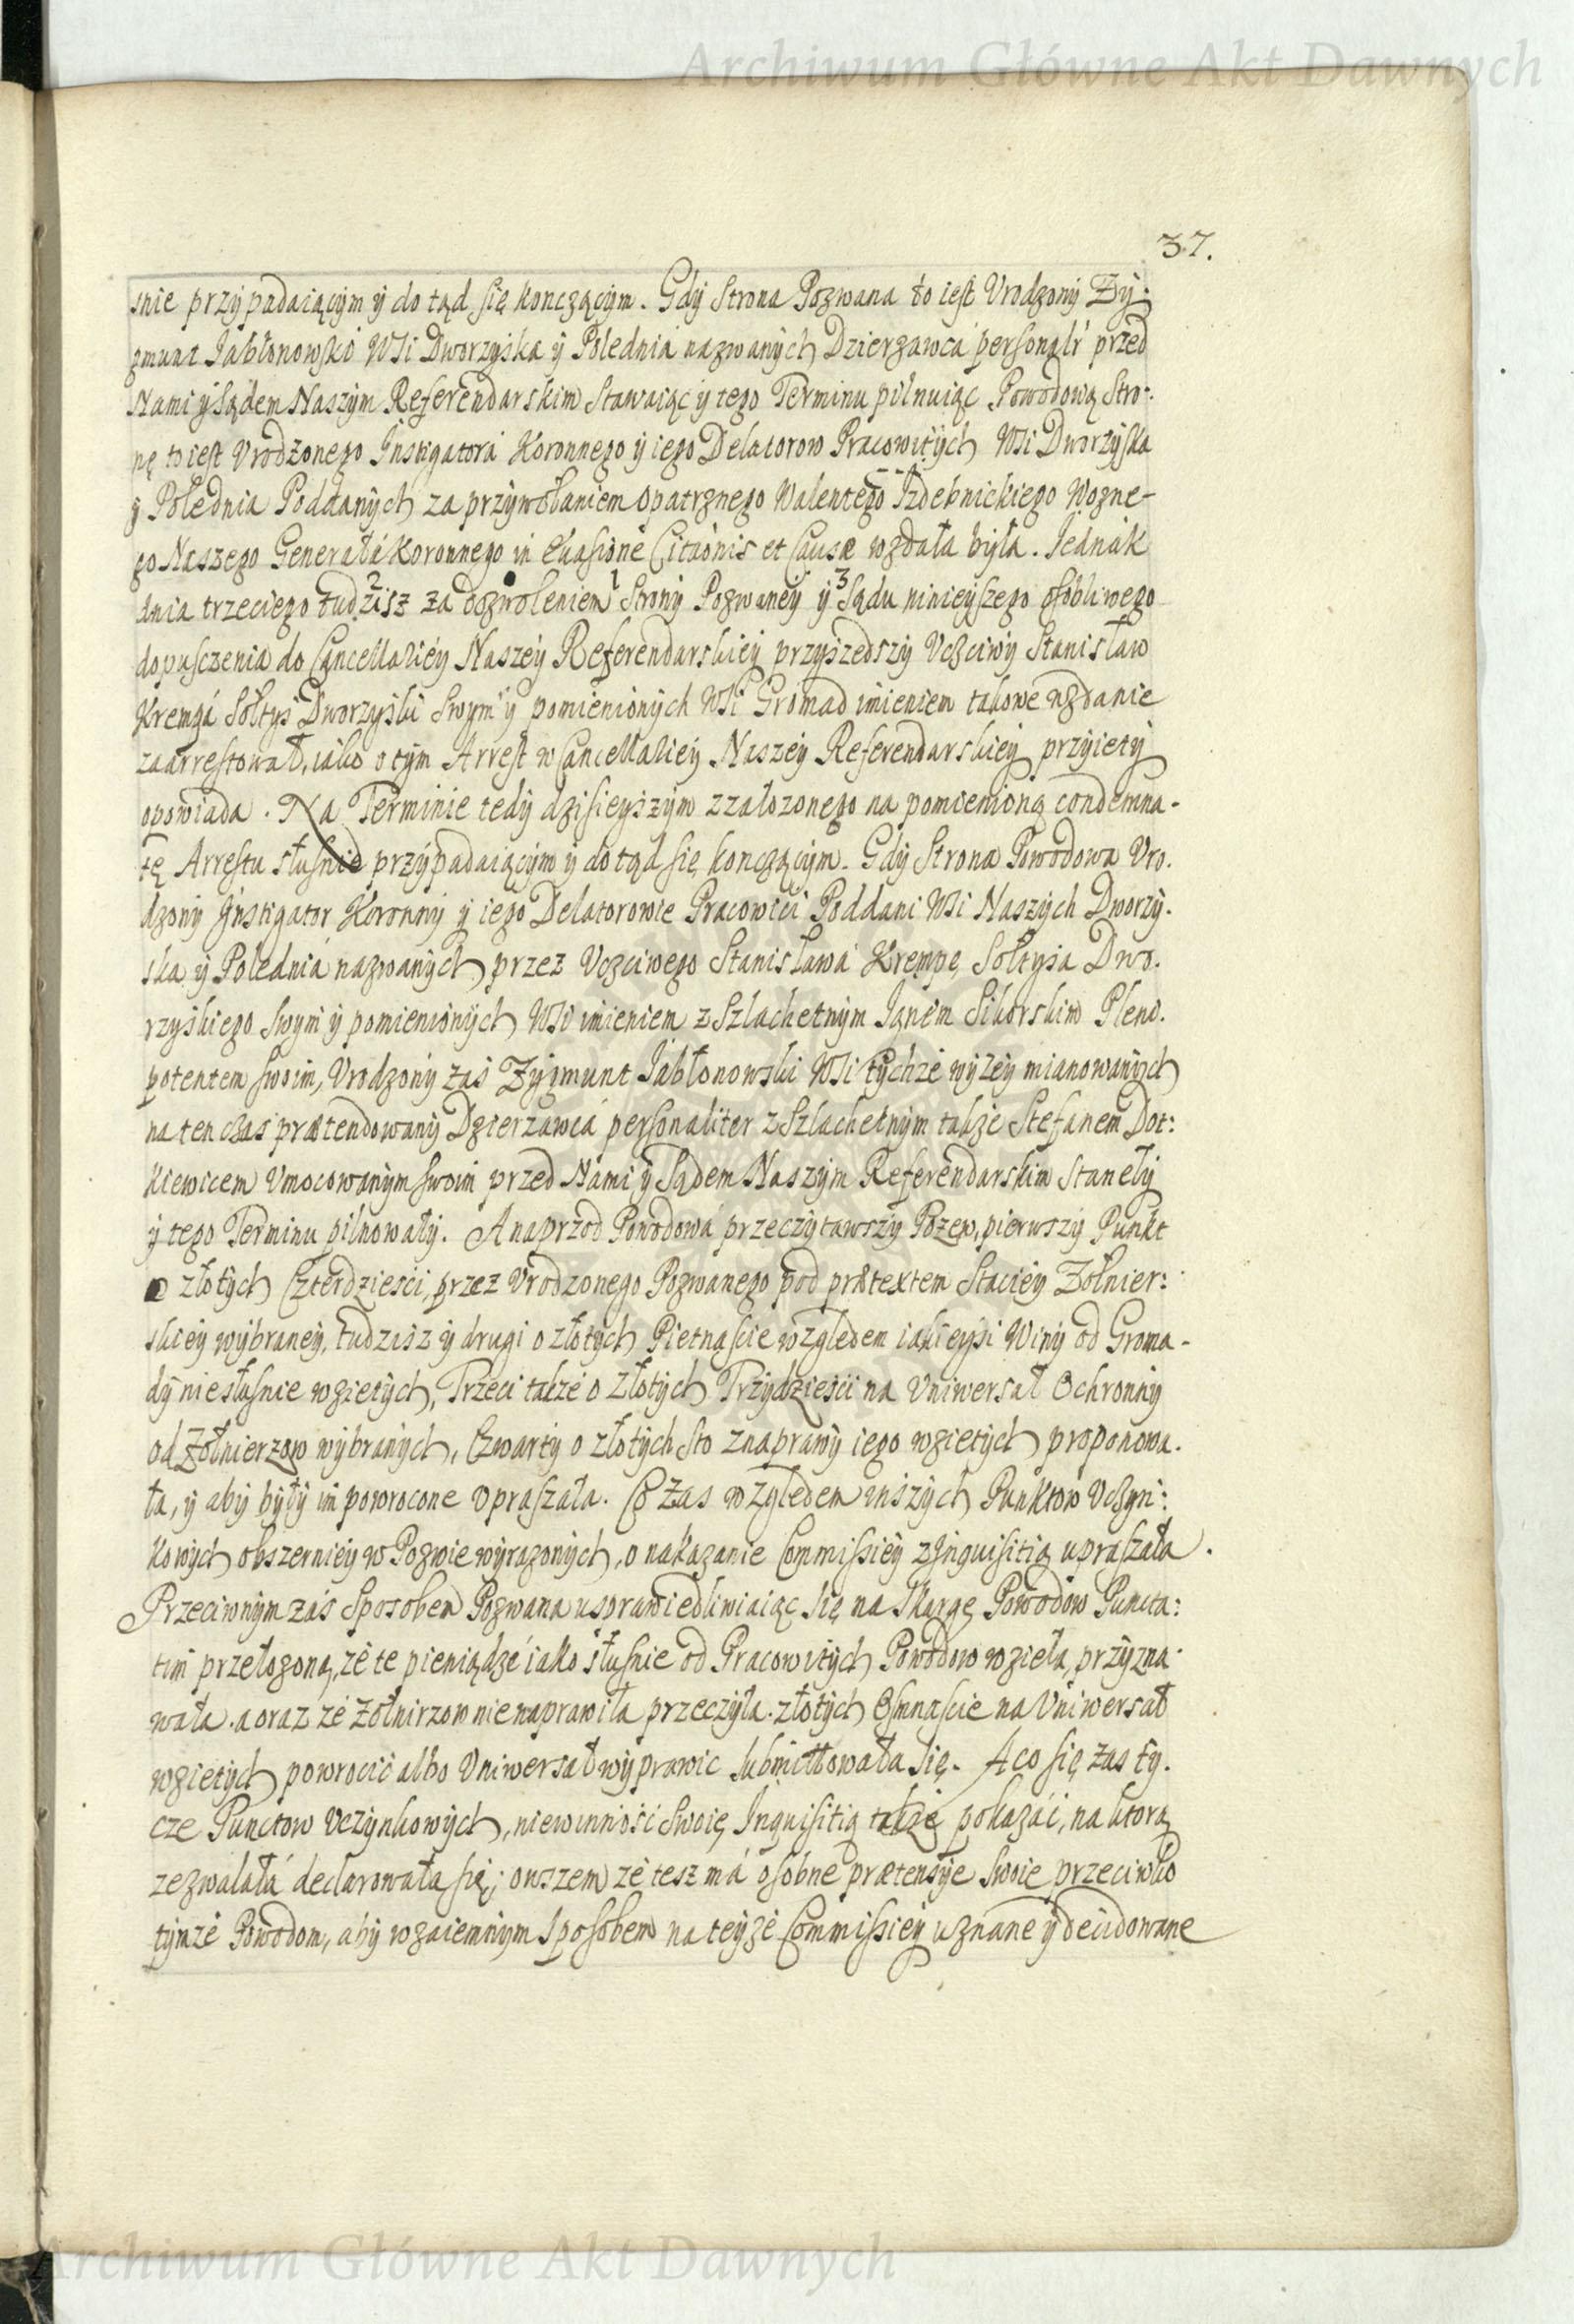 Archiwum Główne Akt Dawnych
37.
snie przypadaiącym y do tąd się konczącym. Gdy Strona Pozwana to iest Vrodzony Zy:
gmunt Jabłonowski WSi Dworzyska y Polednia nazwanych Dzierzawca personalr przed
Nami y Sądem Naszym Referendarskim Stawaiąc y tego Terminu pilnuiąc Powodową Stro:
nę to iest Vrodzonego Instigatora Koronnego y iego Delatorow Pracowitych WSi Dworzyska
y Polednia Poddanych za przywołaniem opatrznego Walentego Izdebnickiego Wozne-
go Naszego Generała Koronnego in Euasione Citaonis et Causæ wzdała była. Jednak
dnia trzeciego tudzisz 2 za dozwoleniem 1 Strony Pozwaney y 3 Sądu ninieyszego osobliwego
dopusczenia do Cancellariey Naszey Referendarskiey przyszedszy Vczciwy Stanisław
Krempa Sołtys Dworzyski Swym y pomienionych WSi Gromad imieniem takowe wzdanie
zaarrestował, iako o tym Arrest w Cancellariey Naszey Referendarskiey przyięty
opowiada. Na Terminie tedy dzisieyszym z załozonego na pomienioną condemna-
tę Arrestu słusnie przypadaiącym y do tąd się konczącym. Gdy Strona Powodowa Vro.
dzony Instigator Koronny y iego Delatorowie Pracowici Poddani WSi Naszych Dworzy.
ska y Polednia nazwanych przez Vczciwego Stanisława Krempę Sołtysa Dwo.
rzyskiego Swym y pomienionych WSi imieniem z Szlachetnym Janem Sikorskim Pleno.
potentem swoim, Vrodzony zas Zygmunt Jabłonowski WSi tychze wyzey mianowanych
na ten czas prætendowany Dzierzawca personaliter z Szlachetnym takze Stefanem Dot:
kiewicem Vmocowanym swoim przed Nami y Sądem Naszym Referendarskim Stanely
y tego Terminu pilnowały. A naprzod Powodowa przeczytawszy Pozew, pierwszy Punkt
o złotych Czterdziesci, przez Vrodzonego Pozwanego pod prætextem Staciey Zołnier:
skiey wybraney, tudzisz y drugi o złotych Pietnascie względem iakieysi Winy od Groma-
dy niesłusnie wzietych, Trzeci takze o złotych Trzydziesci na Vniwersał Ochronny
od Zołnierzow wybranych, Czwarty o złotych Sto z naprawy iego wzietych proponowa.
ła, y aby były im powrocone vpraszała. Co zas względem inszych Punktow Vczyn:
kowych obszerniey w Pozwie wyrazonych, o nakazanie Commissiey z Inquisitią upraszała.
Przeciwnym zas Sposobem Pozwana usprawiedliwiaiąc się na Skargę Powodow Puncta:
tim przełozoną, ze te pieniądze iako słusnie od Pracowitych Powodow wzieła, przyzna.
wała. a oraz ze Zołnirzow nie naprawiła przeczyła. złotych Osmnascie na Vniwersał
wzietych powrocic albo Vniwersał wyprawic submittowała się. A co się zas ty.
cze Punctow Vczynkowych, niewinnosc Swoię Inquisitią takze pokazac, na ktorą
zezwalała declarowała się; owszem ze tesz ma osobne prætensye Swoie przeciwko
tymze Powodom, aby wzaiemnym sposobem na teyze Commissiey uznane y decidowane
Archiwum Główne Akt Dawnych